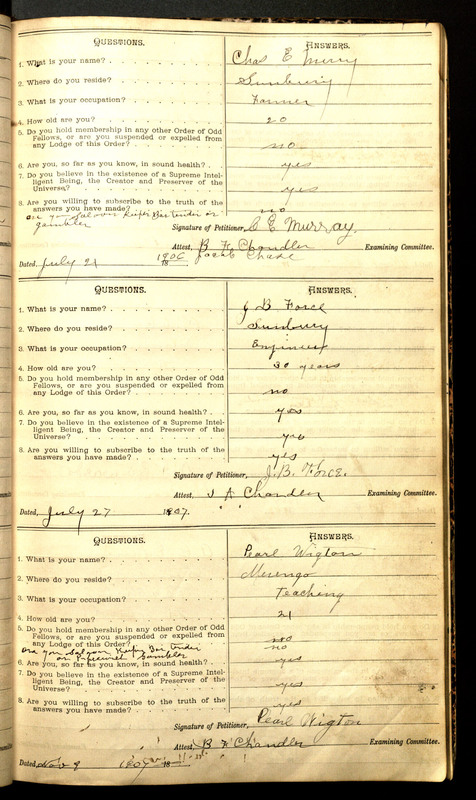 QUESTIONS. ANSWERS.
1. What is your name? Chas E Murry
2. Where do you reside? Sunbury
3. What is your occupation? Farmer
4. How old are you? 20
5. Do you hold membership in any other Order of Odd
Fellows, or are you suspended or expelled from
any Lodge of this Order? no
6. Are you, so far as you know, in sound health? yes
7. Do you believe in the existence of a Supreme Intel-
ligent Being, the Creator and Preserver of the
Universe? yes
8. Are you willing to subscribe to the truth of the
answers you have made? no
are you Saloon Keeper Bar Tender or
gambler
Signature of Petitioner, C E Murray.
Attest, B F Chandler Examining Committee.
Jacob Chase
Dated, July 21 1906
QUESTIONS. ANSWERS.
1. What is your name? J B Force
2. Where do you reside? Sunbury
3. What is your occupation? Engineer
4. How old are you? 30 years
5. Do you hold membership in any other Order of Odd
Fellows, or are you suspended or expelled from
any Lodge of this Order? no
6. Are you, so far as you know, in sound health? yes
7. Do you believe in the existence of a Supreme Intel-
ligent Being, the Creator and Preserver of the
Universe? yes
8. Are you willing to subscribe to the truth of the
answers you have made? yes
Signature of Petitioner, J. B. Force.
Attest, J A Chandler Examining Committee.
Dated, July 27 1907.
QUESTIONS. ANSWERS.
1. What is your name? Pearl Wigton
2. Where do you reside? Merengo
3. What is your occupation? Teaching
4. How old are you? 21
5. Do you hold membership in any other Order of Odd
Fellows, or are you suspended or expelled from
any Lodge of this Order? no
are you Saloon Keeper Bar Tender no
or Professional Gambler
6. Are you, so far as you know, in sound health? yes
7. Do you believe in the existence of a Supreme Intel-
ligent Being, the Creator and Preserver of the
Universe? yes
8. Are you willing to subscribe to the truth of the
answers you have made? yes
Signature of Petitioner, Pearl Wigton
Attest, B F Chandler Examining Committee.
Dated, Nov 9 1907 18